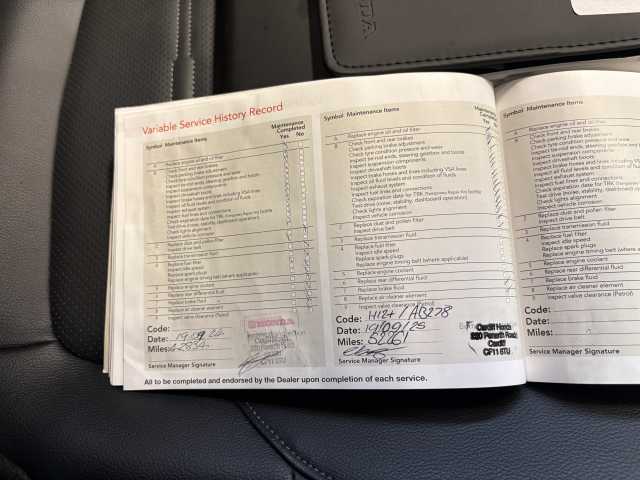 HONDA
Variable Service History Record
Symbol Maintenance Items
Maintenance
Completed
Yes No
A Replace engine oil and oil filter
B Check front and rear brakes
Check parking brake adjustment
Check tyre condition pressure and wear
Inspect tie-rod ends, steering gearbox and boots
Inspect suspension components
Inspect driveshaft boots
Inspect brake hoses and lines including VSA lines
Inspect all fluid levels and condition of fluids
Inspect exhaust system
Inspect fuel lines and connections
Check expiration date for TRK
Test drive (noise, stability, dashboard operation)
Check lights alignment
Inspect vehicle corrosion
2 Replace dust and pollen filter
Inspect drive belt
3 Replace transmission fluid
4 Replace fuel filter
Inspect idle speed
Replace spark plugs
Replace engine timing belt (where applicable)
5 Replace engine coolant
6 Replace rear differential fluid
7 Replace brake fluid
8 Replace air cleaner element
9 Inspect valve clearance (Petrol)
Code:
Date:
Miles:
Service Manager Signature
HONDA
CF11 8TU
Symbol Maintenance Items
Maintenance
Completed
Yes No
A Replace engine oil and oil filter
B Check front and rear brakes
Check parking brake adjustment
Check tyre condition pressure and wear
Inspect tie-rod ends, steering gearbox and boots
Inspect suspension components
Inspect driveshaft boots
Inspect brake hoses and lines including VSA lines
Inspect all fluid levels and condition of fluids
Inspect exhaust system
Inspect fuel lines and connections
Check expiration date for TRK
Test drive (noise, stability, dashboard operation)
Check lights alignment
Inspect vehicle corrosion
2 Replace dust and pollen filter
Inspect drive belt
3 Replace transmission fluid
4 Replace fuel filter
Inspect idle speed
Replace spark plugs
Replace engine timing belt (where applicable)
5 Replace engine coolant
6 Replace rear differential fluid
7 Replace brake fluid
8 Replace air cleaner element
9 Inspect valve clearance (Petrol)
Code:
Date: 19/09/25
Miles:
Service Manager Signature
Cardiff Honda
Penarth Road
Cardiff
CF11 8TU
All to be completed and endorsed by the Dealer upon completion of each service.
Symbol Maintenance Items
A Replace engine oil and oil filter
B Check front and rear brakes
Check parking brake adjustment
Check tyre condition pressure and wear
Inspect tie-rod ends, steering gearbox and
Inspect suspension components
Inspect driveshaft boots
Inspect brake hoses and lines including VSA
Inspect all fluid levels and condition of fluids
Inspect exhaust system
Inspect fuel lines and connections
Check expiration date for TRK
Test drive (noise, stability, dashboard
Check lights alignment
Inspect vehicle corrosion
2 Replace dust and pollen filter
Inspect drive belt
3 Replace transmission fluid
4 Replace fuel filter
Inspect idle speed
Replace spark plugs
Replace engine timing belt (where
5 Replace engine coolant
6 Replace rear differential fluid
7 Replace brake fluid
8 Replace air cleaner element
9 Inspect valve clearance (Petrol)
Code:
Date:
Miles:
Service Manager Signature